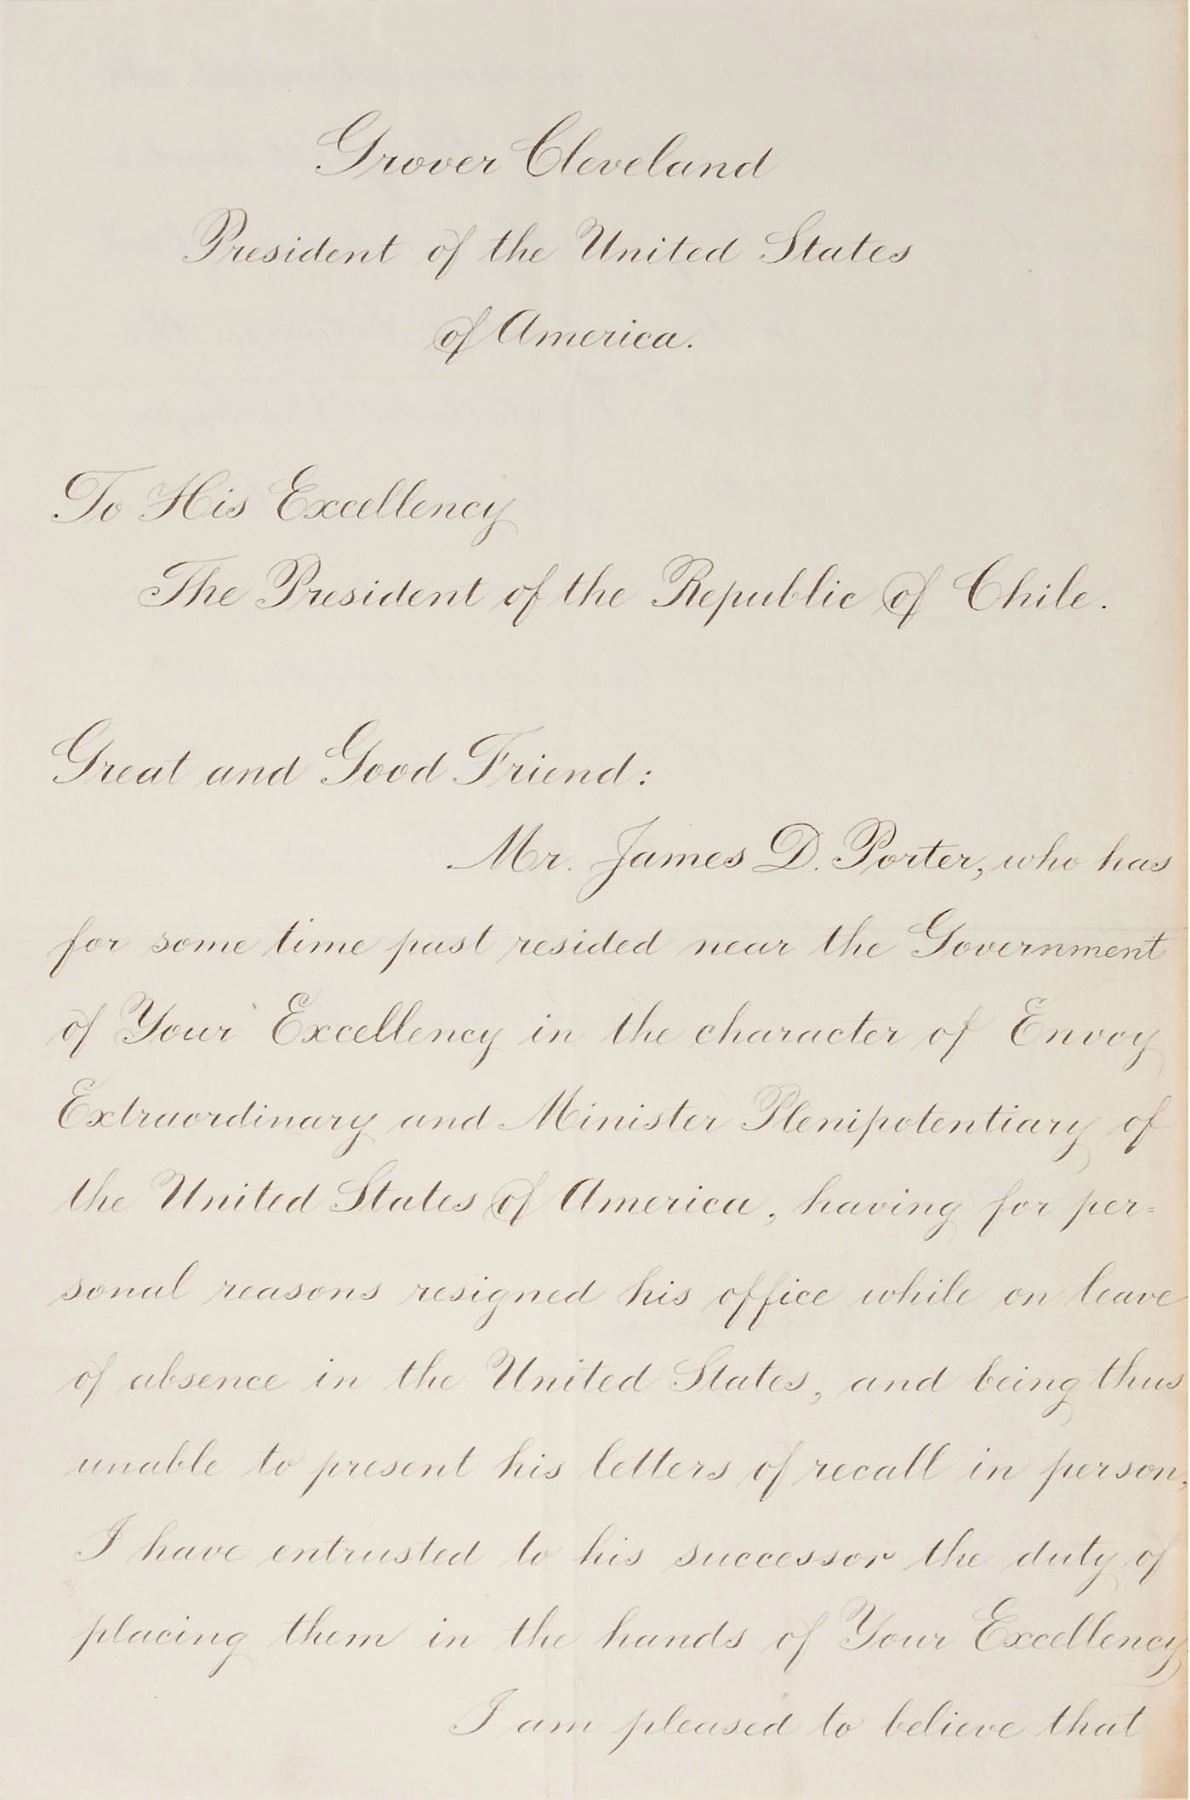 Grover Cleveland
President of the United States
of America.
To His Excellency
The President of the Republic of Chile.
Great and Good Friend:
Mr. James D. Porter, who has
for some time past resided near the Government
of Your Excellency in the character of Envoy
Extraordinary and Minister Plenipotentiary of
the United States of America, having for per=
sonal reasons resigned his office while on leave
of absence in the United States, and being thus
unable to present his letters of recall in person,
I have entrusted to his successor the duty of
placing them in the hands of Your Excellency.
I am pleased to believe that